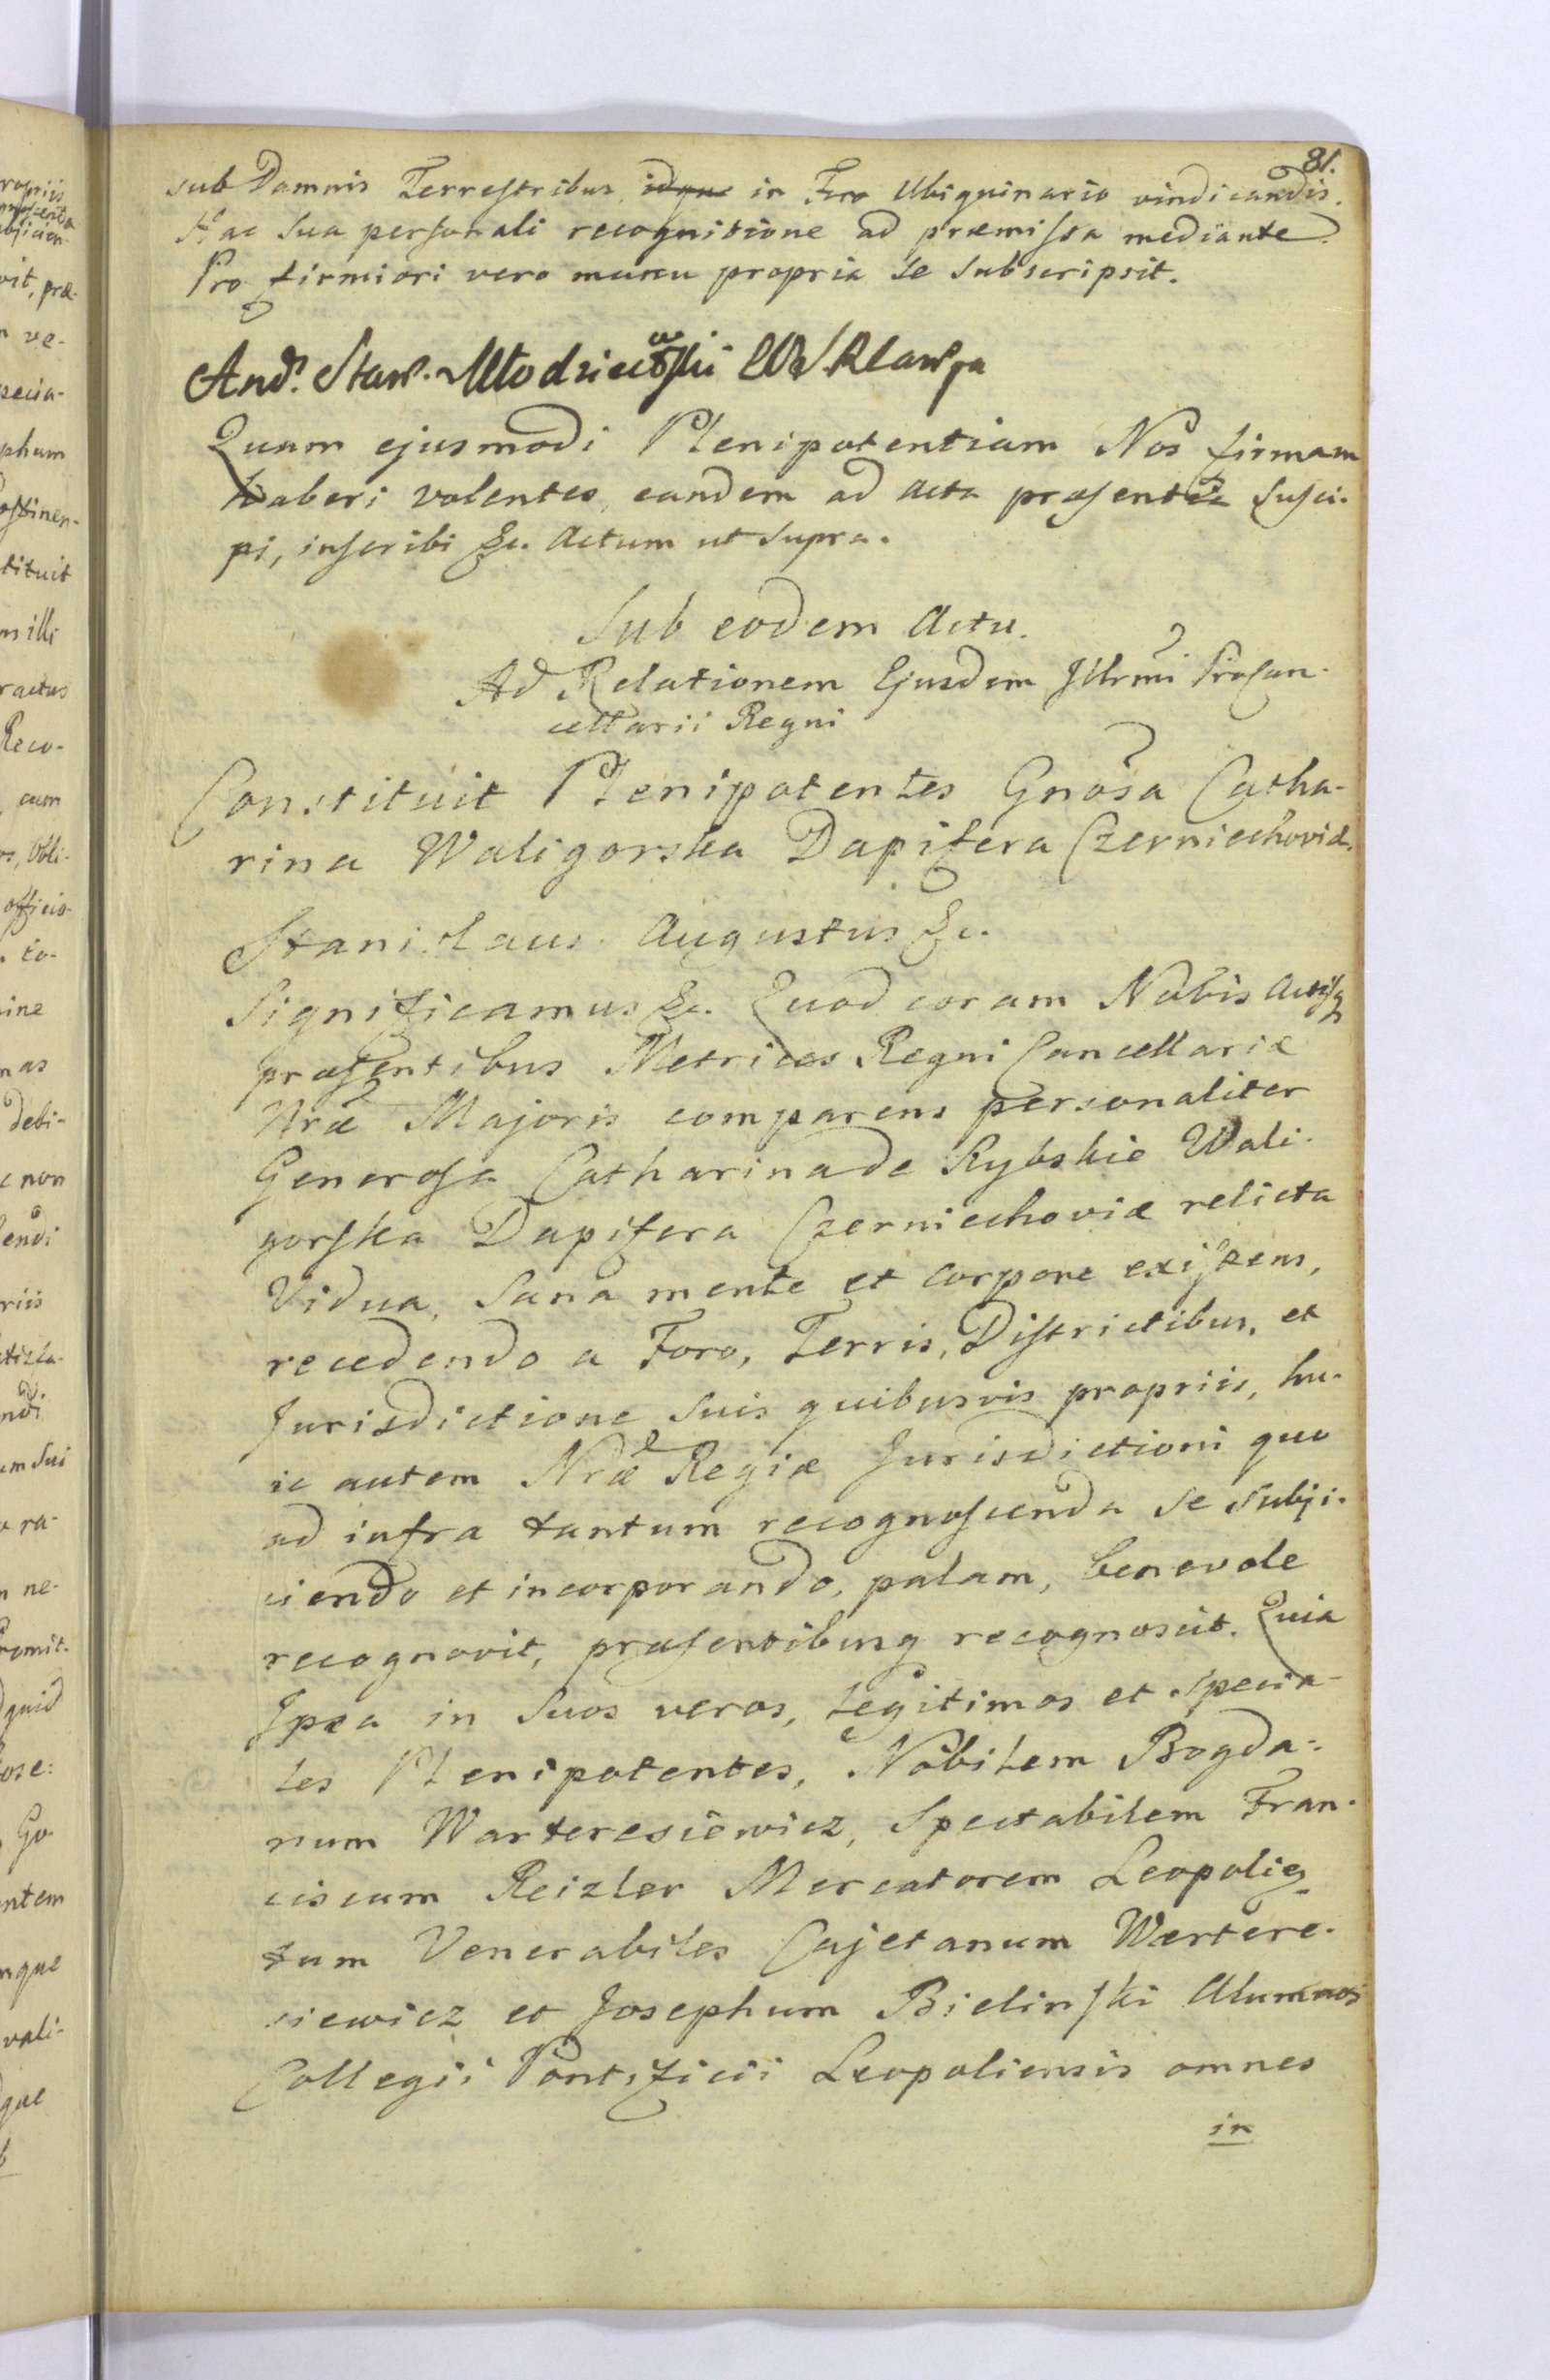 81.
sub Damnis Terrestribus idque in Foro Ubiquinario vindicandis.
Hac sua personali recognitione ad præmissa mediante.
Pro firmiori vero manu propria se subscripsit.
And. Staw. Młodziewoski
Quam ejusmodi Plenipotentiam Nos firmam
haberi volentes, eandem ad acta præsentia susci-
pi, inscribi &c. Actum ut supra.
Sub eodem Actu.
Ad Relationem Ejusdem Illrmi Procan-
cellarii Regni
Constituit Plenipotentes Gnosa Catha-
rina Waligorska Dapifera Czerniechoviæ.
Stanislaus Augustus &c.
Significamus &c. Quod coram Nobis Actisq
præsentibus Metrices Regni Cancellariæ
Nræ Majoris comparens personaliter
Generosa Catharina de Rybskie Wali-
gorska Dapifera Czerniechoviæ relicta
Vidua, sana mente et corpore existens,
recedendo a Foro, Terris, Districtibus, et
Jurisdictione suis quibusvis propriis, hu-
ic autem Nræ Regiæ Jurisdictioni quo
ad infra tantum recognoscenda se subji-
ciendo et incorporando, palam, benevole
recognovit, præsentibusq recognoscit. Quia
Ipsa in suos veros, legitimos et specia-
les Plenipotentes, Nobilem Bogda-
num Warteresiewicz, Spectabilem Fran-
ciscum Reizler Mercatorem Leopolien
tum Venerabiles Cajetanum Wartere-
siewicz et Josephum Bielinski Alumnos
Collegii Pontificii Leopoliensis omnes
in